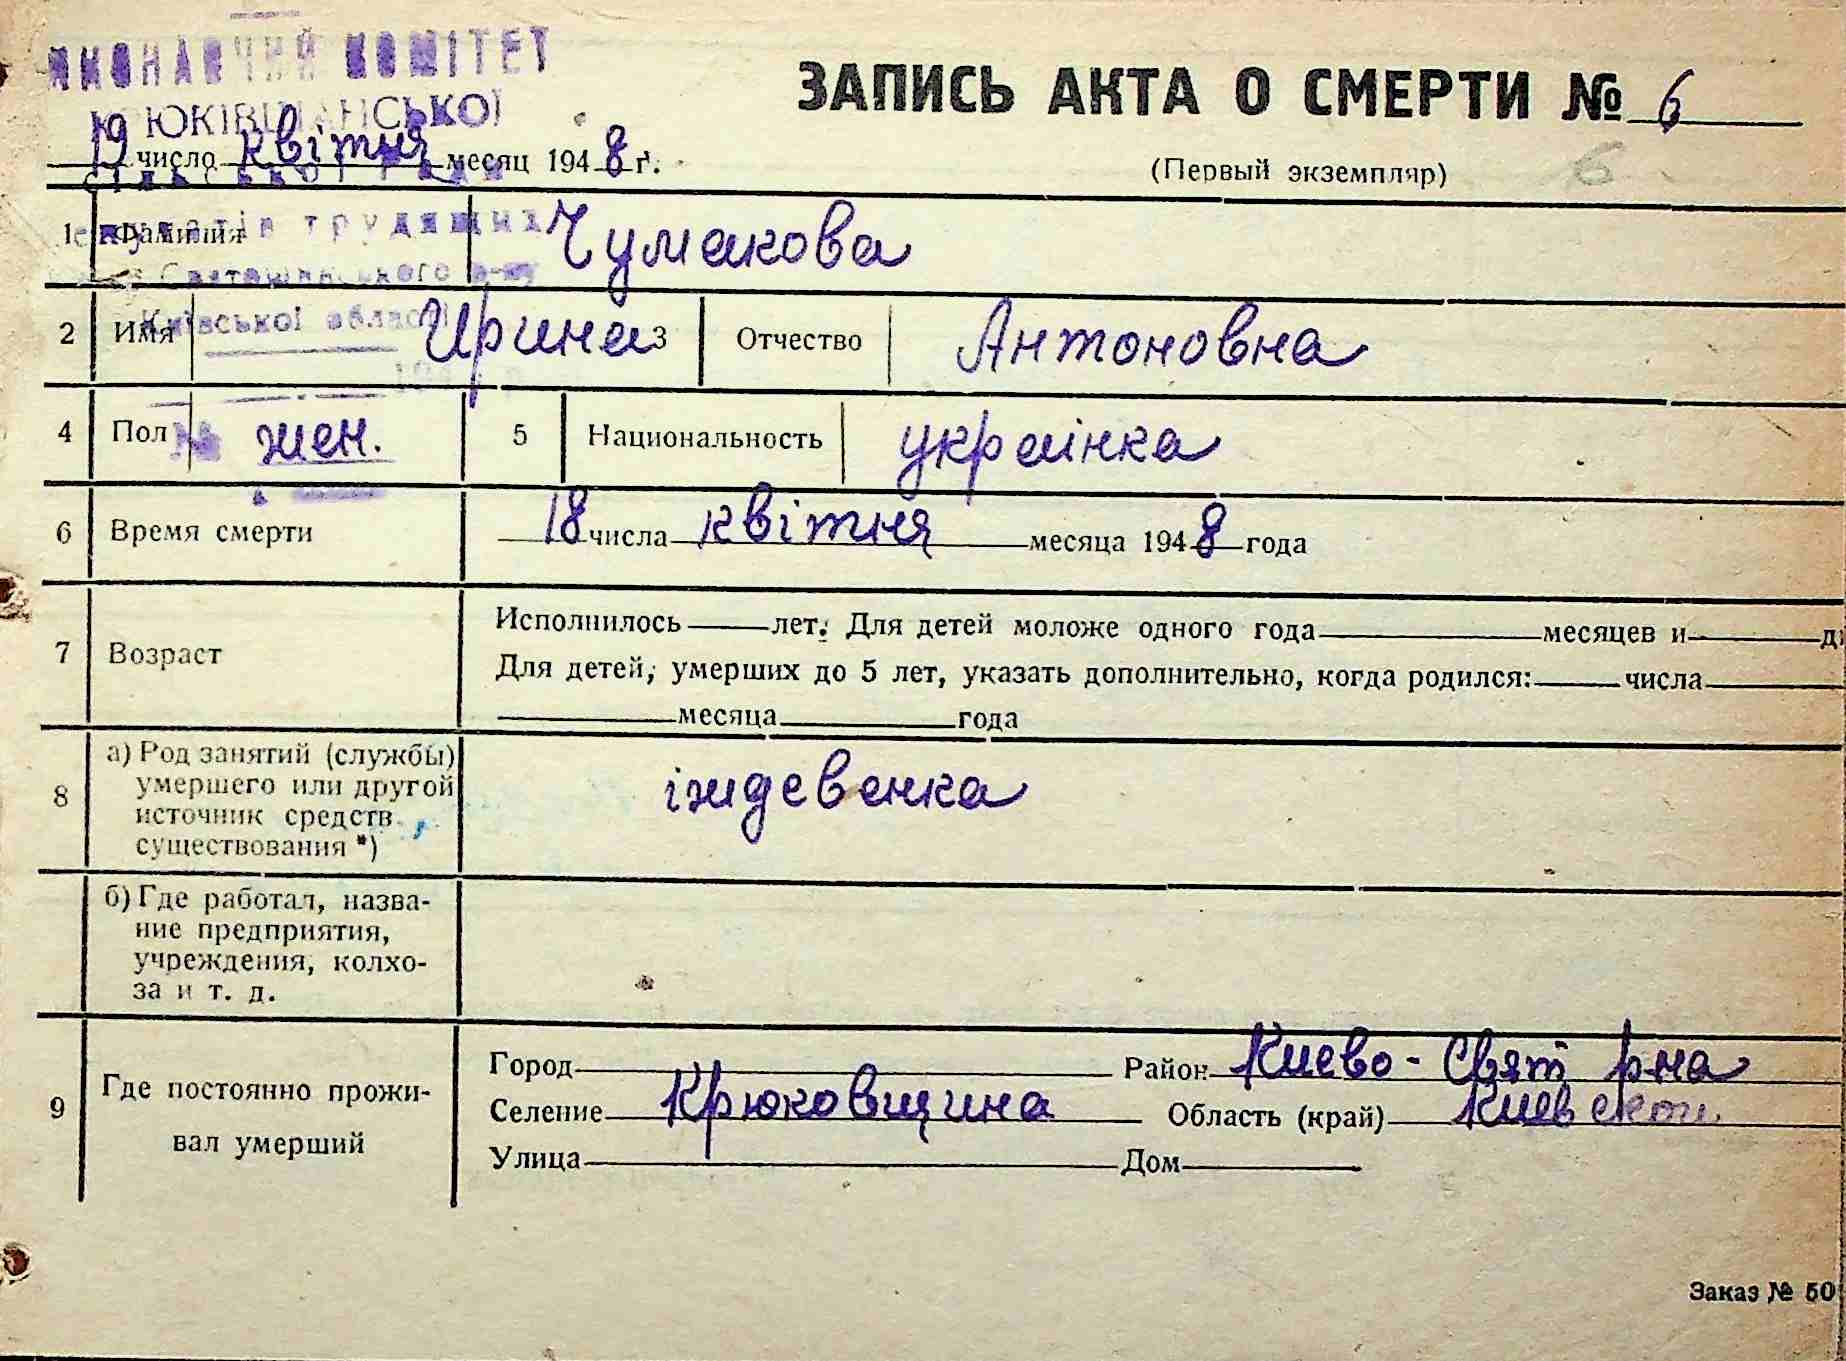 КОМІТЕТ
ЗАПИСЬ АКТА О СМЕРТИ № 6
19 число квітня месяц 1948 г.
(Первый экземпляр)
6
1 Фамилия Чумакова
трудящих
Святошинського р-ну
Київської області
2 Имя Ирина 3 Отчество Антоновна
4 Пол жен. 5 Национальность украінка
6 Время смерти 18 числа квітня месяца 1948 года
7 Возраст
Исполнилось лет. Для детей моложе одного года месяцев и д
Для детей, умерших до 5 лет, указать дополнительно, когда родился: числа
месяца года
8 а) Род занятий (службы)
умершего или другой
источник средств
существования *)
індевенка
б) Где работал, назва-
ние предприятия,
учреждения, колхо-
за и т. д.
9 Где постоянно прожи-
вал умерший
Город Район Киево-Свят р-на
Селение Крюковщина Область (край) Киевской
Улица Дом
Заказ № 50